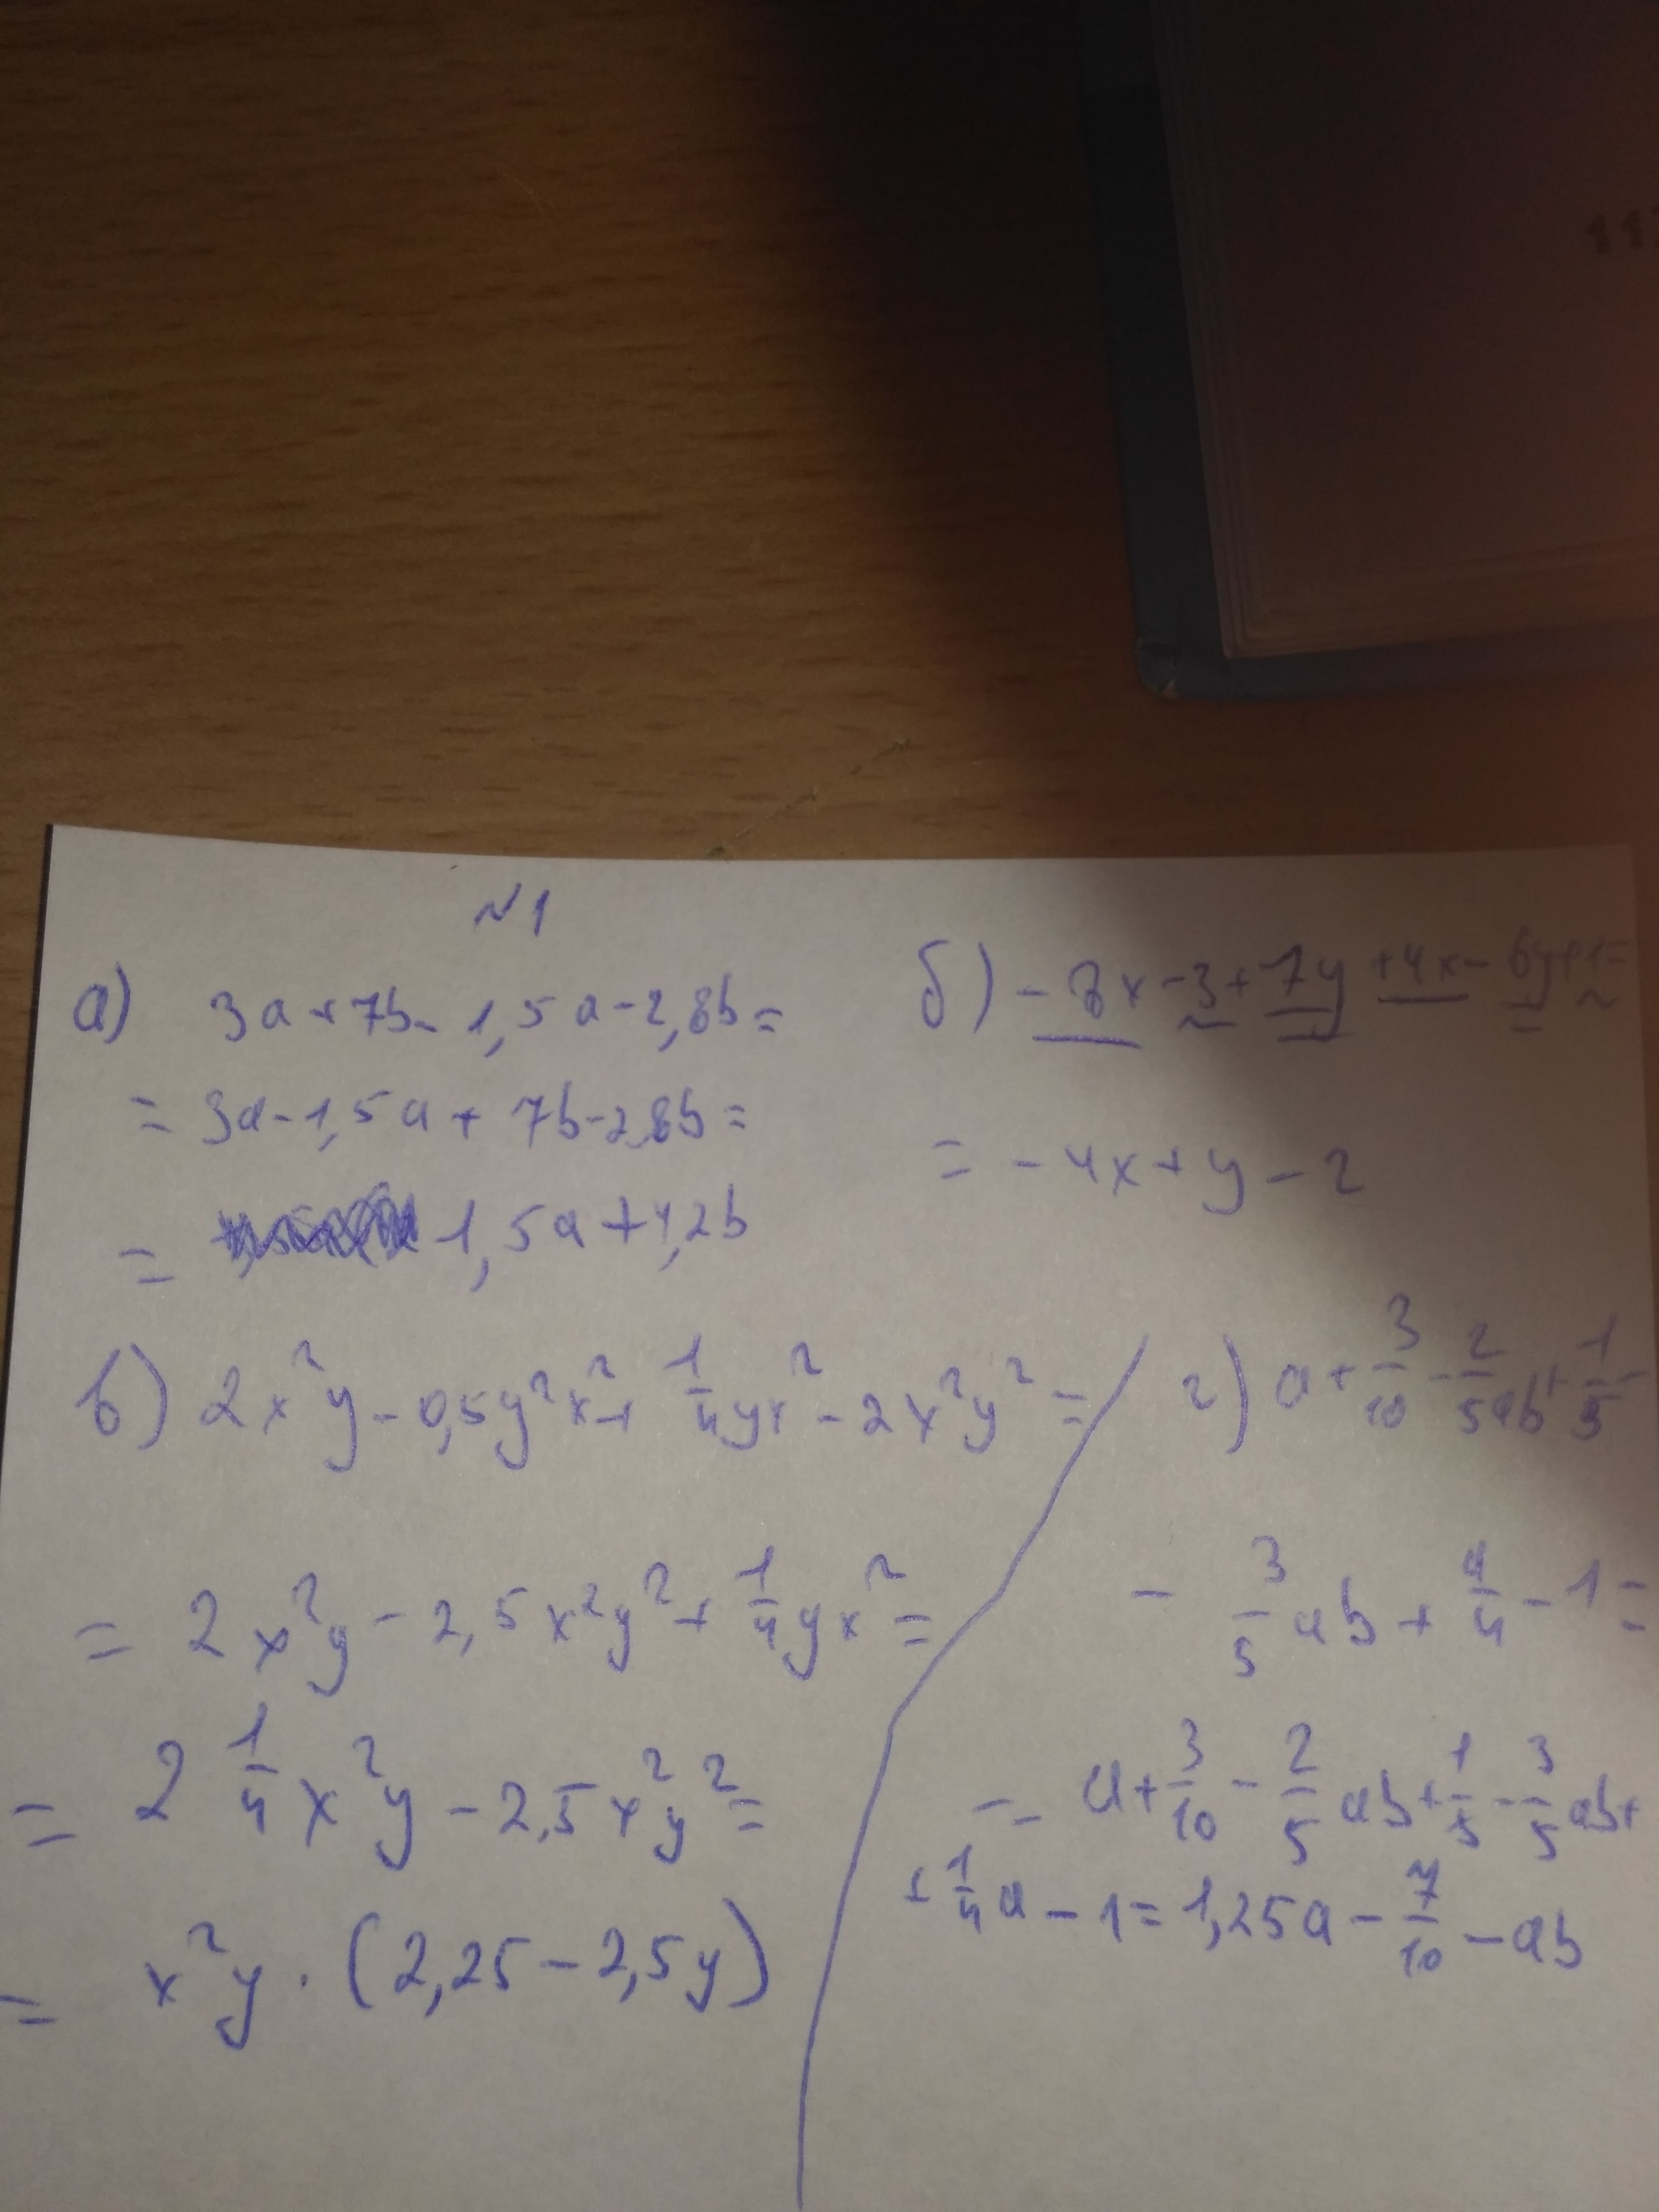 11
№1
а) 3a+7b-1,5a-2,8b=
=3a-1,5a+7b-2,8b=
=1,5a+4,2b
б) -8x-3+7y+4x-6y+1=
=-4x+y-2
в) 2x²y-0,5y²x²+1/4yx²-2x²y²=
=2x²y-2,5x²y²+1/4yx²=
=2 1/4x²y-2,5x²y²=
=x²y·(2,25-2,5y)
г) a+3/10-2/5ab+1/5-
-3/5ab+a/4-1=
=a+3/10-2/5ab+1/5-3/5ab+
+1/4a-1=1,25a-7/10-ab